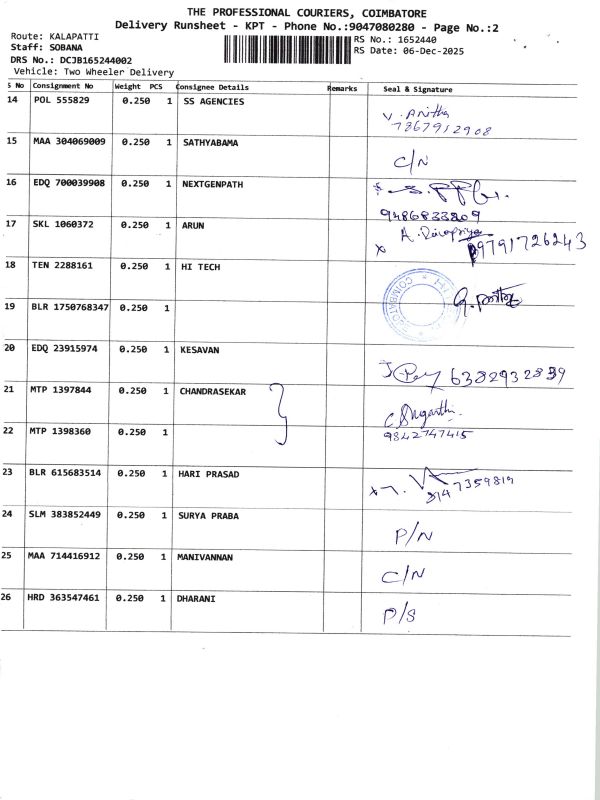 THE PROFESSIONAL COURIERS, COIMBATORE
Delivery Runsheet - KPT - Phone No.:9047080280 - Page No.:2
Route: KALAPATTI
Staff: SOBANA
DRS No.: DCJB165244002
Vehicle: Two Wheeler Delivery
RS No.: 1652440
RS Date: 06-Dec-2025
S No Consignment No Weight PCS Consignee Details Remarks Seal & Signature
14 POL 555829 0.250 1 SS AGENCIES V. Anitha
7867912908
15 MAA 304069009 0.250 1 SATHYABAMA C/N
16 EDQ 700039908 0.250 1 NEXTGENPATH
9486833209
17 SKL 1060372 0.250 1 ARUN
9791726243
18 TEN 2288161 0.250 1 HI TECH
19 BLR 1750768347 0.250 1
20 EDQ 23915974 0.250 1 KESAVAN 6382932839
21 MTP 1397844 0.250 1 CHANDRASEKAR
9842747415
22 MTP 1398360 0.250 1
23 BLR 615683514 0.250 1 HARI PRASAD
24 SLM 383852449 0.250 1 SURYA PRABA P/N
25 MAA 714416912 0.250 1 MANIVANNAN C/N
26 HRD 363547461 0.250 1 DHARANI P/S